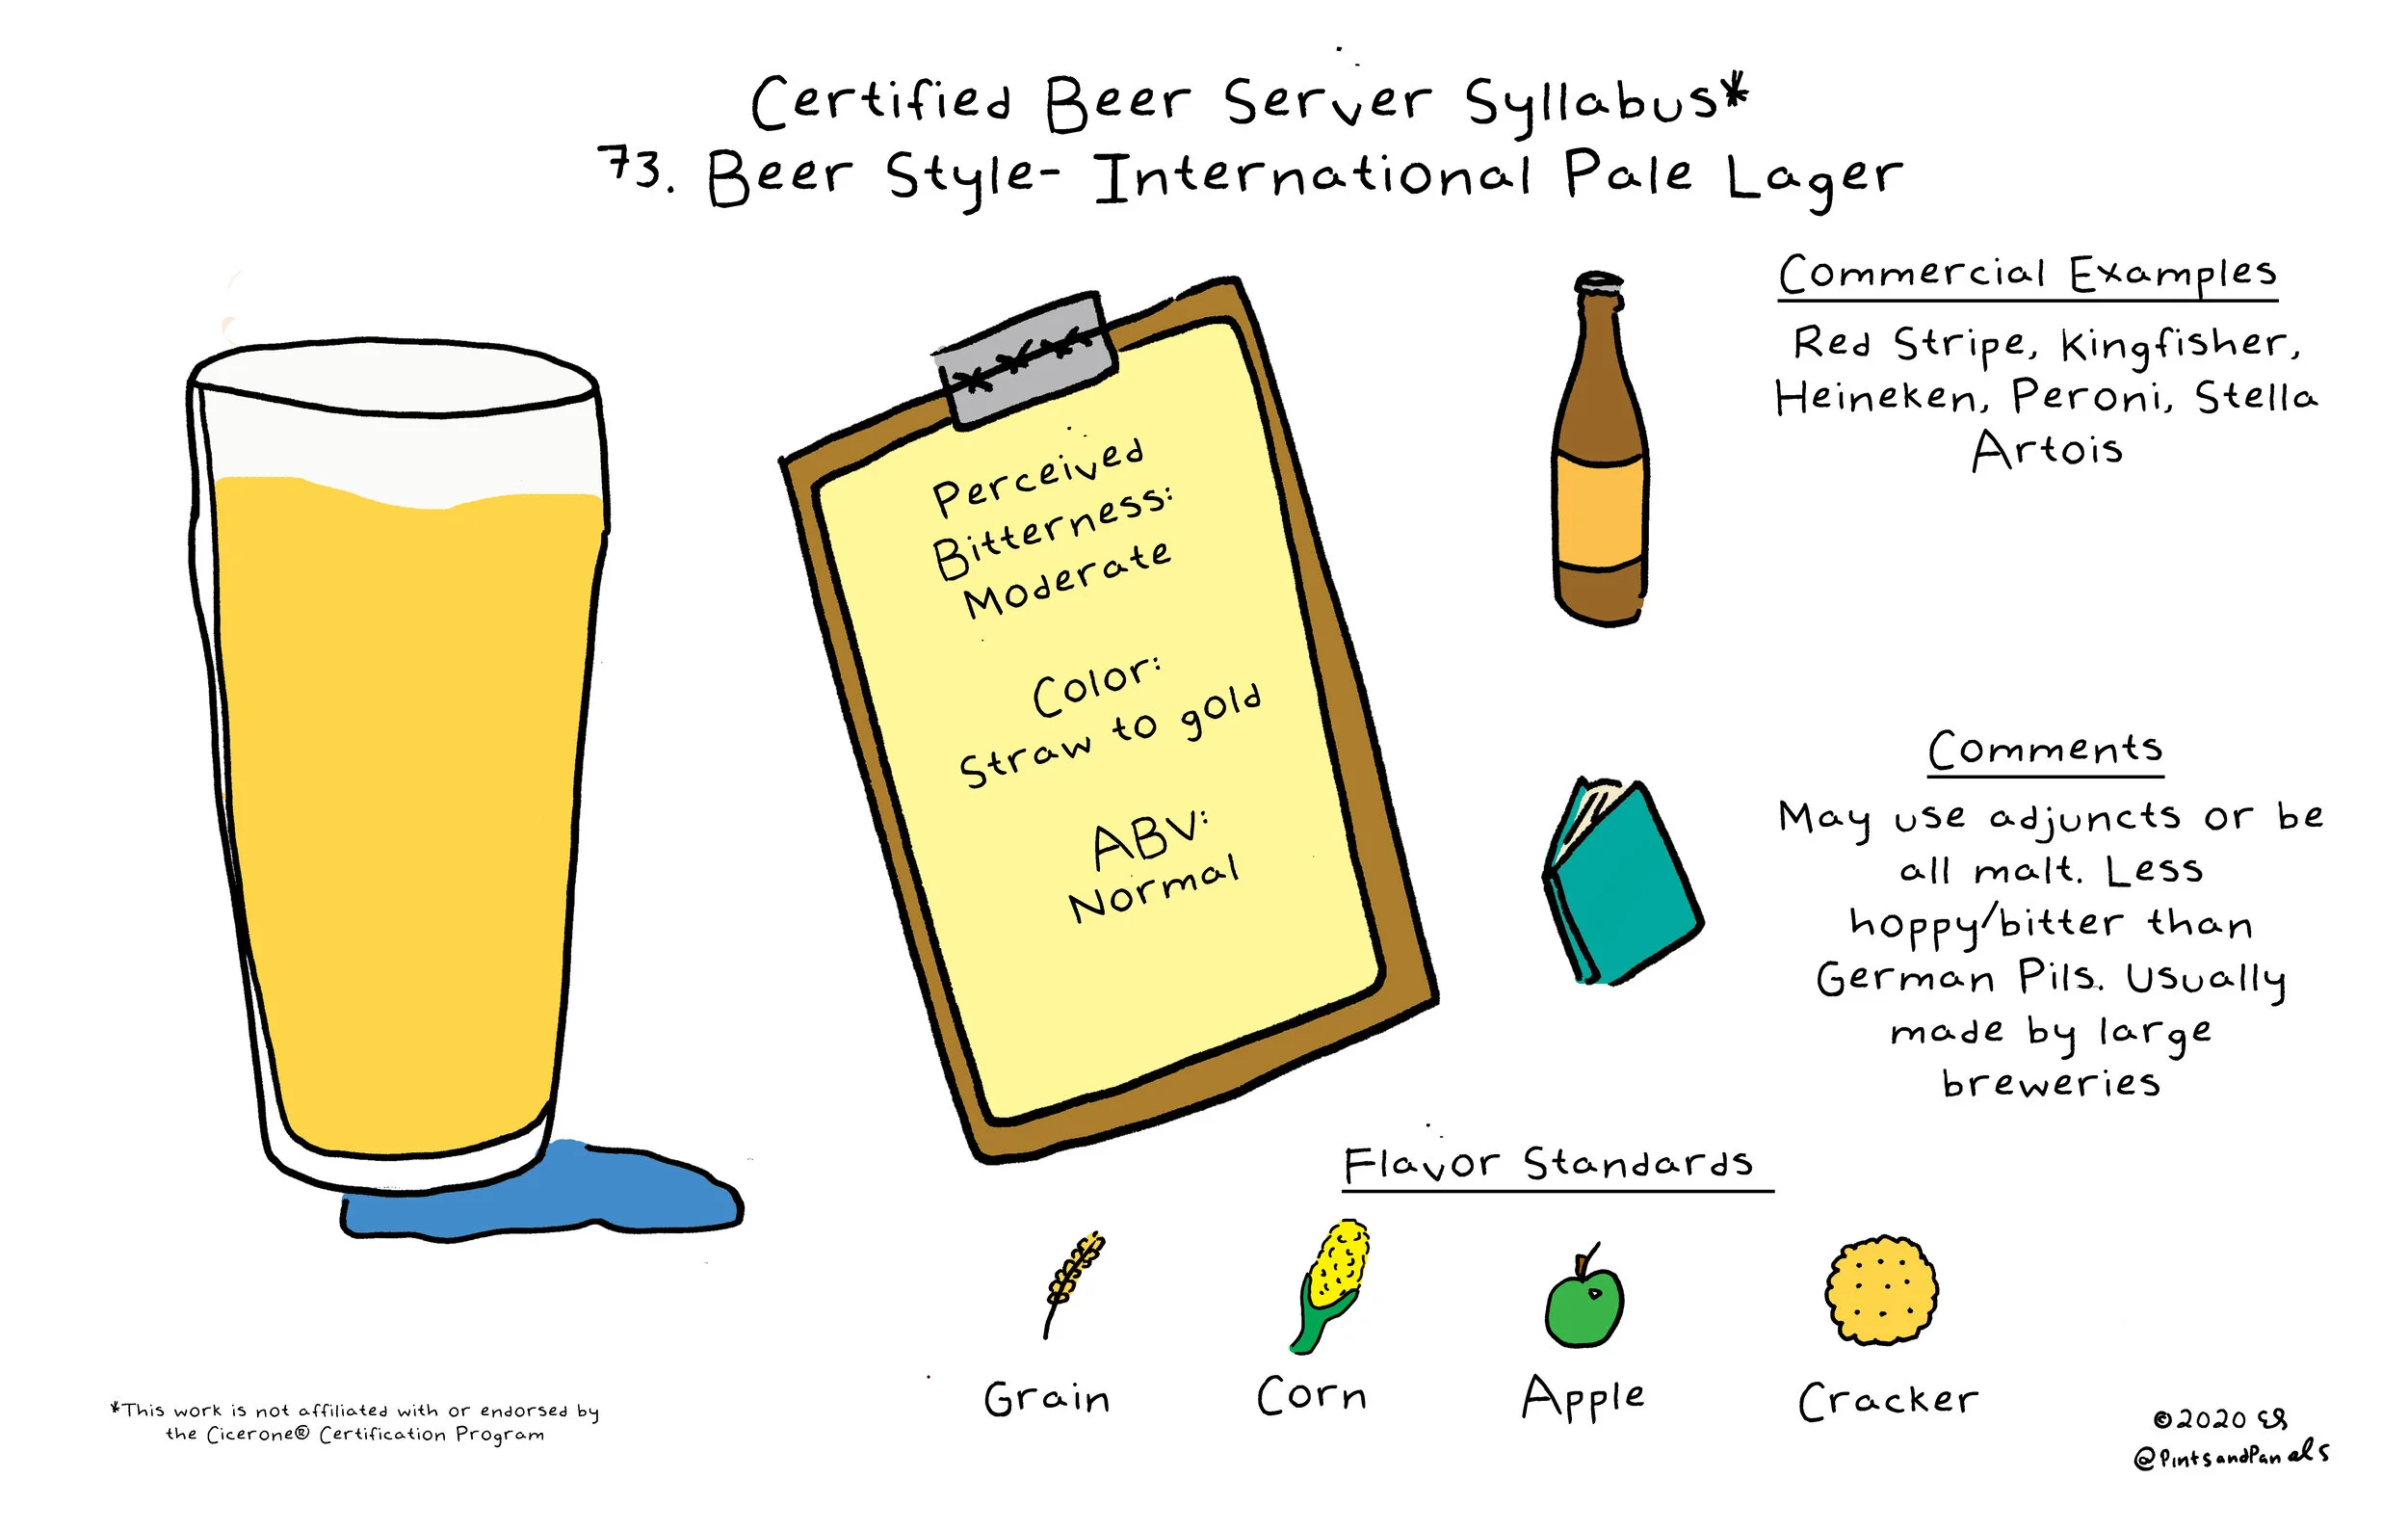 Certified Beer Server Syllabus*
73. Beer Style- International Pale Lager
Perceived
Bitterness:
Moderate
Color:
Straw to gold
ABV:
Normal
Commercial Examples
Red Stripe, Kingfisher,
Heineken, Peroni, Stella
Artois
Comments
May use adjuncts or be
all malt. Less
hoppy/bitter than
German Pils. Usually
made by large
breweries
Flavor Standards
Grain
Corn
Apple
Cracker
*This work is not affiliated with or endorsed by
the Cicerone® Certification Program
©2020 ES
@PintsandPanels